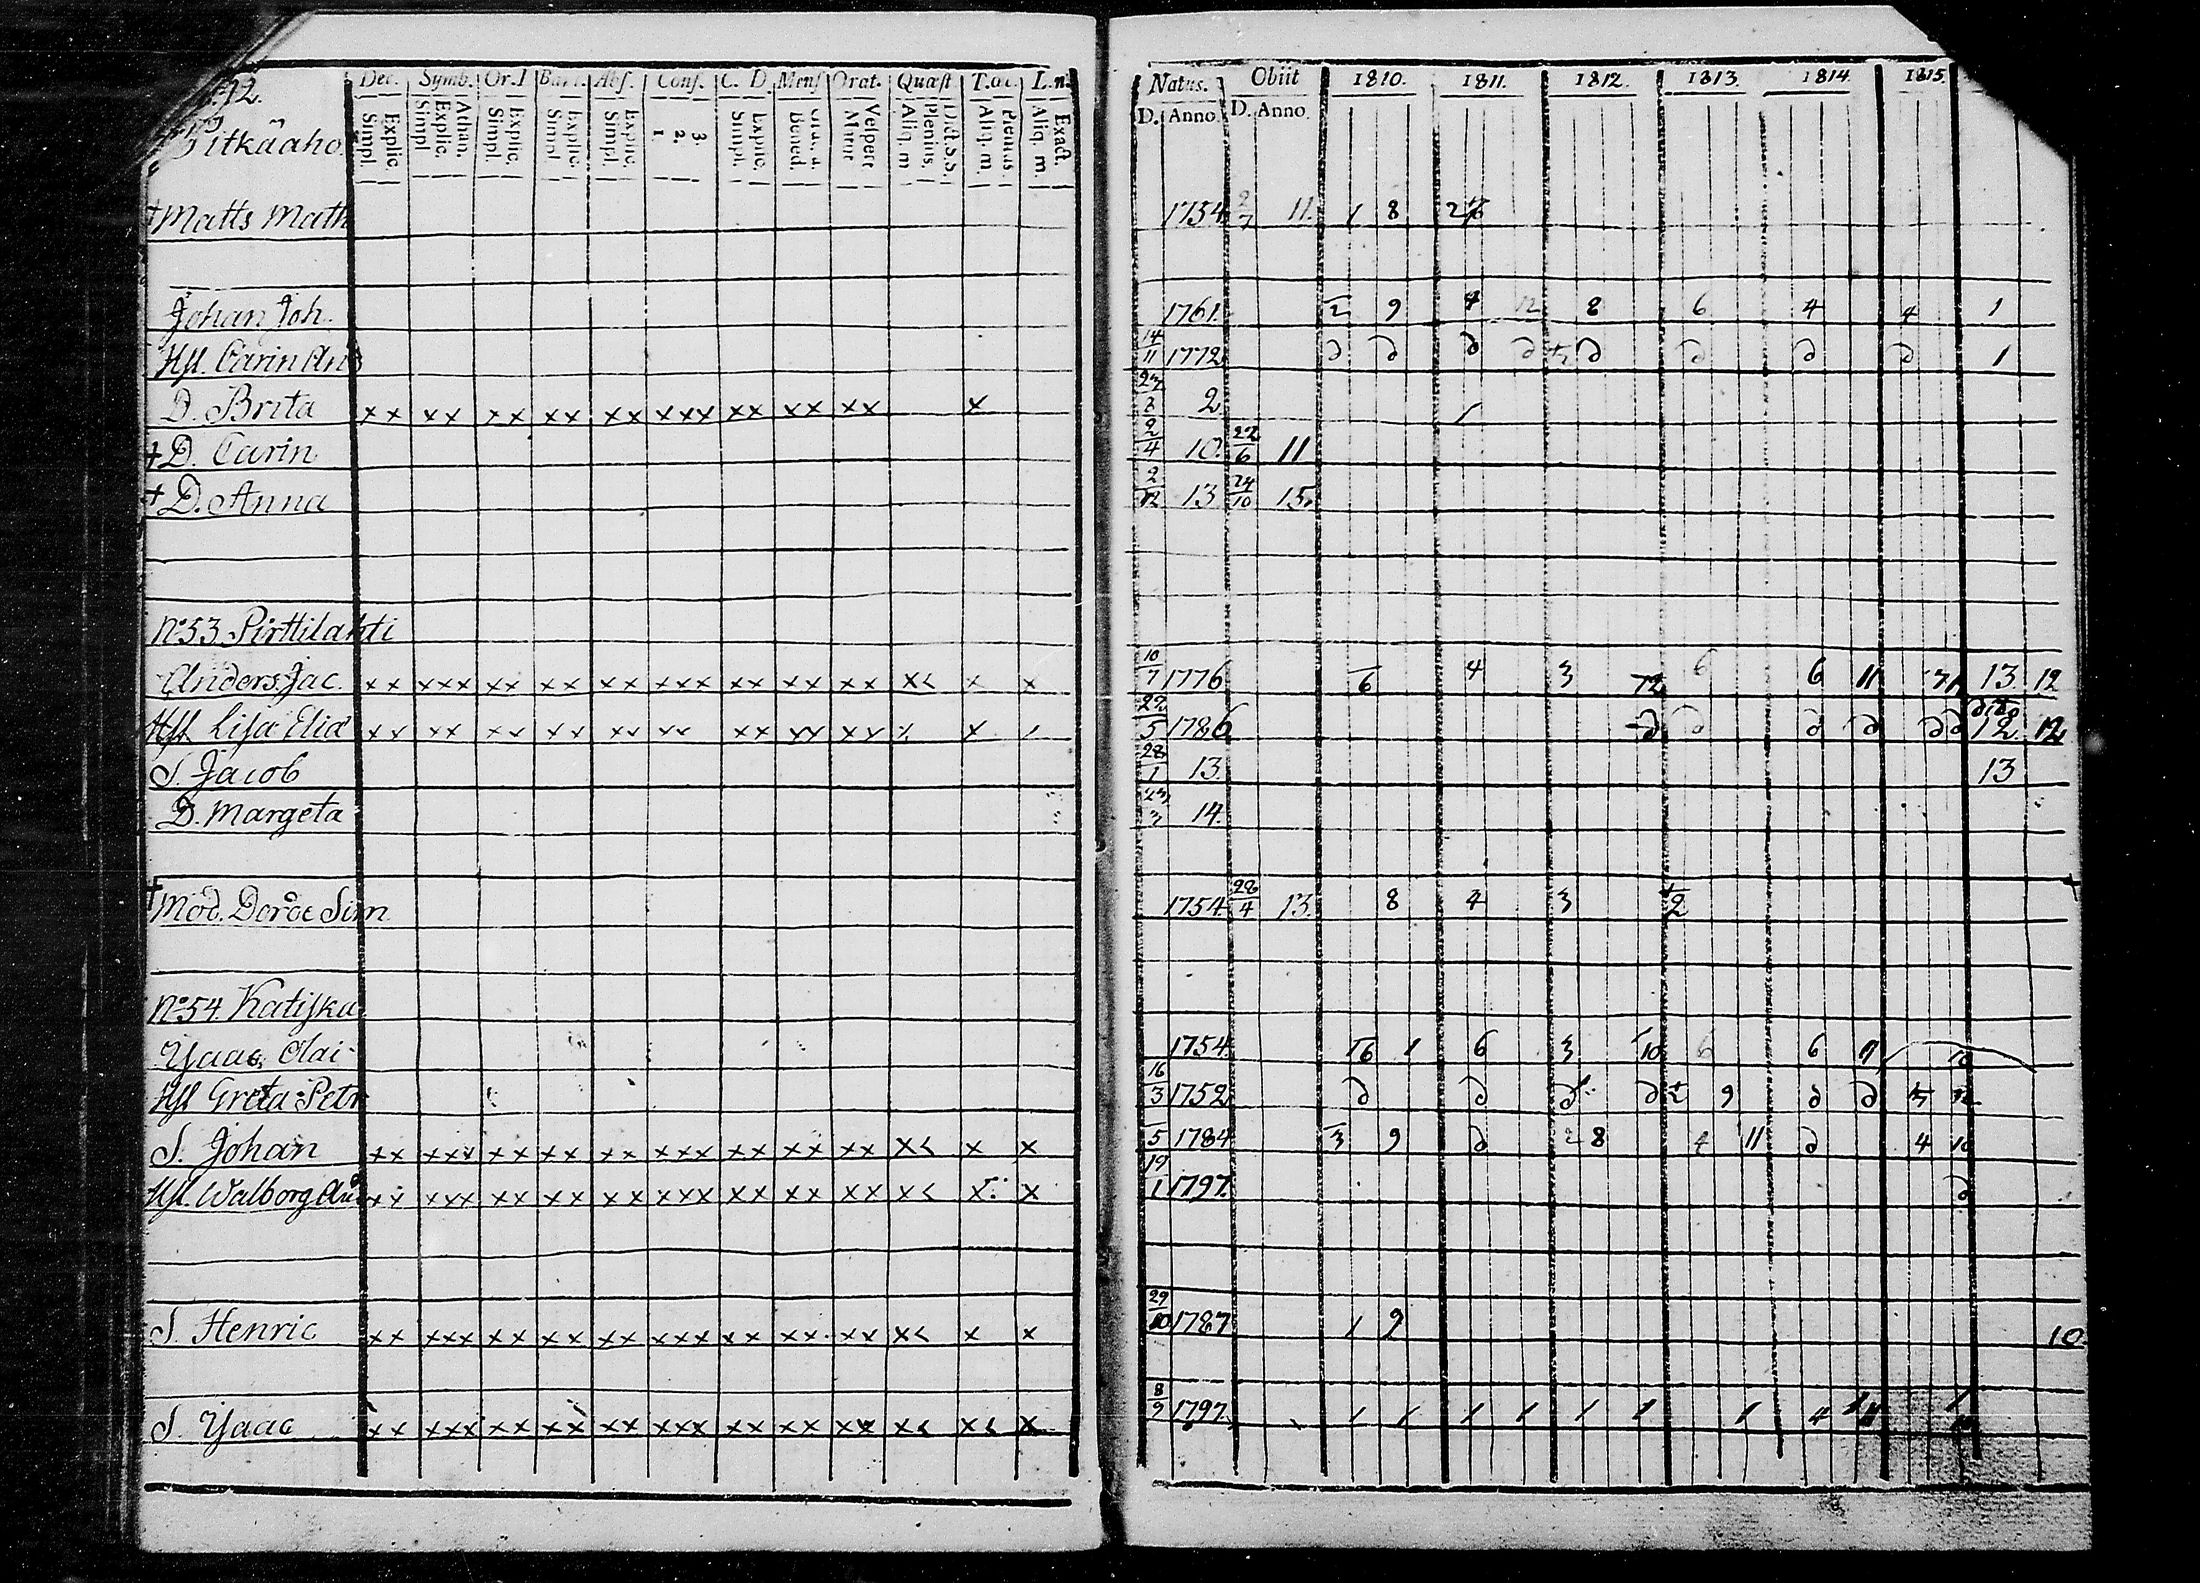 Dec. Symb. Or. I Bapt. Abs. Conf. C. D Mens Orat. Quæst T. œc. L. n.
Explic. Simpl. Athan. Explic. Simpl. Explic. Simpl. Explic. Simpl. Explic. Simpl. 3. 2. 1. Explic. Simpl. Bened. Vesper Matut. Dict. S. S. Plenius. Aliq. m Plenius Aliq. m. Exact. Aliq. m.
Natus. Obiit 1810. 1811. 1812. 1813. 1814 1815.
D. Anno D. Anno
Pitkäaho
† Matts Math 1754 2/7 11. 1 8
Johan Joh. 1761. 9 4 12 8 6 4 4 1
Hst. Carin And 14/11 1772 d d d d d d d d 1
D. Brita xx xx xx xx xx xxx xx xx xx x 2 1
† D. Carin 2/4 10. 22/6 11
† D. Anna 2/12 13 24/10 15.
No 53 Pirttilahti
Anders Jac. xx xxx xx xx xx xxx xx xx xx x< x x 10/7 1776 6 4 3 6 6 11 13 12
Hst Lisa Elia xx xx xx xx xx xx xx xx xx x 1786 d d d d d d 12 12
S. Jacob 28/1 13. 13
D. Margeta 23/3 14.
† Mod. Dorde Sim 1754 28/4 13. 8 4 3 2
No 54. Katiska
Ysaac Olai 1754. 6 1 6 3 10 6 6 11 10
Hst Greta Petr 16/3 1752 d d d d 9 d d
S. Johan xx xxx xx xx xx xxx xx xx xx x< x x 5 1784 3 9 d 2 8 4 11 d 4 10
Hst. Walborg And xx xxx xx xx xx xxx xx xx xx x< x x 19/1 1797. d
S. Henric xx xxx xx xx xx xxx xx xx xx x< x x 29/10 1787 1 9 10
S. Ysaac xx xxx xx xx xx xxx xx xx xx x< x< x 8/9 1797 1 1 1 1 1 1 1 4 11 1